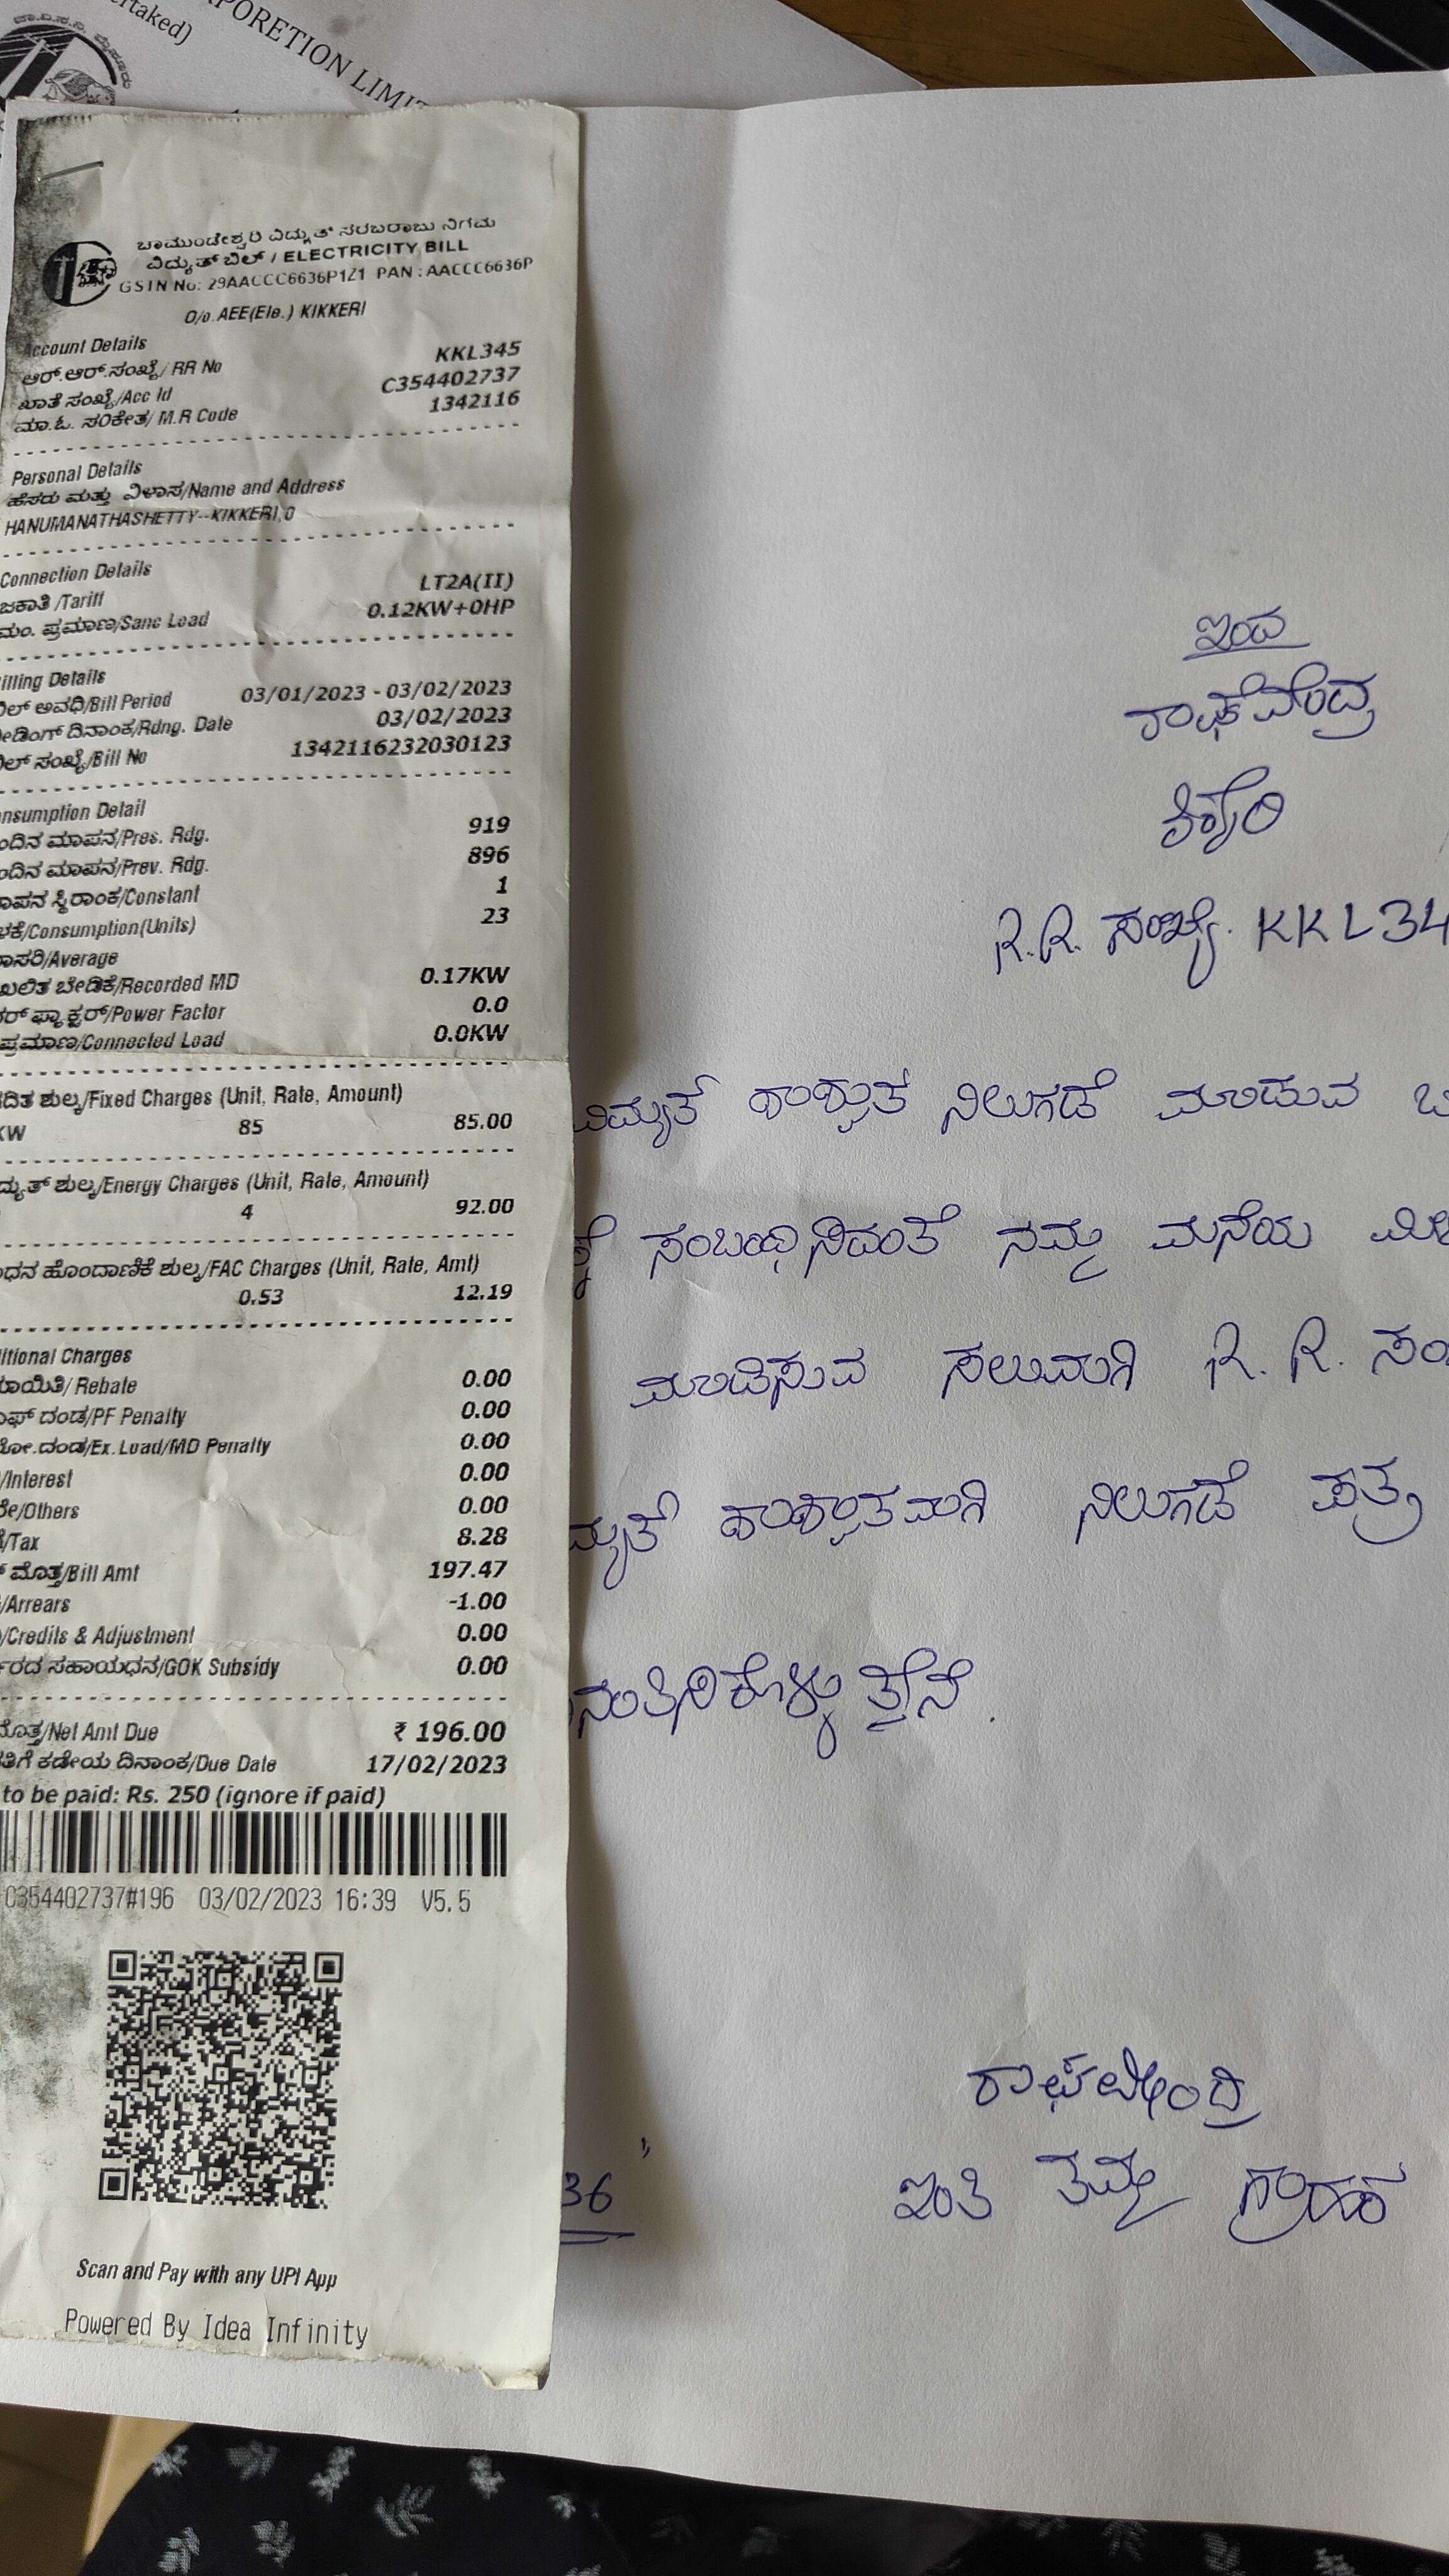 PORETION LIMIT
ertaked)
ಚಾಮುಂಡೇಶ್ವರಿ ವಿದ್ಯುತ್ ಸರಬರಾಜು ನಿಗಮ
ವಿದ್ಯುತ್ ಬಿಲ್ / ELECTRICITY BILL
GSIN No: 29AACCC6636P1Z1 PAN : AACCC6636P
O/o AEE(Ele.) KIKKERI
Account Details
ಆರ್.ಆರ್.ಸಂಖ್ಯೆ/ RR No KKL345
ಖಾತೆ ಸಂಖ್ಯೆ/Acc Id C354402737
ಮಾ.ಓ. ಸಂಕೇತ/ M.R Code 1342116
Personal Details
ಹೆಸರು ಮತ್ತು ವಿಳಾಸ/Name and Address
HANUMANATHASHETTY--KIKKERI,0
Connection Details
ಜಕಾತಿ /Tariff LT2A(II)
ಮಂ. ಪ್ರಮಾಣ/Sanc Load 0.12KW+0HP
illing Details
ಲ್ ಅವಧಿ/Bill Period 03/01/2023 - 03/02/2023
ೀಡಿಂಗ್ ದಿನಾಂಕ/Rdng. Date 03/02/2023
ಲ್ ಸಂಖ್ಯೆ/Bill No 1342116232030123
nsumption Detail
ಂದಿನ ಮಾಪನ/Pres. Rdg. 919
ಂದಿನ ಮಾಪನ/Prev. Rdg. 896
ಾಪನ ಸ್ಥಿರಾಂಕ/Constant 1
ಳಕೆ/Consumption(Units) 23
ಾಸರಿ/Average
ಖಲಿತ ಬೇಡಿಕೆ/Recorded MD 0.17KW
ರ್ ಫ್ಯಾಕ್ಟರ್/Power Factor 0.0
ಪ್ರಮಾಣ/Connected Load 0.0KW
ದಿತ ಶುಲ್ಕ/Fixed Charges (Unit, Rate, Amount)
KW 85 85.00
ದ್ಯುತ್ ಶುಲ್ಕ/Energy Charges (Unit, Rate, Amount)
4 92.00
ಧನ ಹೊಂದಾಣಿಕೆ ಶುಲ್ಕ/FAC Charges (Unit, Rate, Amt)
0.53 12.19
itional Charges
ಾಯಿತಿ/ Rebate 0.00
ಎಫ್ ದಂಡ/PF Penalty 0.00
ೋ.ದಂಡ/Ex. Load/MD Penalty 0.00
/Interest 0.00
ರೇ/Others 0.00
/Tax 8.28
ಮೊತ್ತ/Bill Amt 197.47
/Arrears -1.00
/Credits & Adjustment 0.00
ರದ ಸಹಾಯಧನ/GOK Subsidy 0.00
ಮೊತ್ತ/Net Amt Due ₹ 196.00
ತಿಗೆ ಕಡೇಯ ದಿನಾಂಕ/Due Date 17/02/2023
to be paid: Rs. 250 (ignore if paid)
C354402737#196 03/02/2023 16:39 V5.5
Scan and Pay with any UPI App
Powered By Idea Infinity
ಇಂದ
ರಾಘವೇಂದ್ರ
ಕಿಕ್ಕೇರಿ
R.R. ಸಂಖ್ಯೆ. KKL34
ವಿದ್ಯುತ್ ಶಾಶ್ವತ ನಿಲುಗಡೆ ಮಾಡುವ ಬ
ಸಂಬಂಧಿಸಿದಂತೆ ನಮ್ಮ ಮನೆಯ ಮೀ
ಮಾಡಿಸುವ ಸಲುವಾಗಿ R.R. ಸಂ
ದ್ಯುತ್ ಶಾಶ್ವತವಾಗಿ ನಿಲುಗಡೆ ಪತ್ರ
ನಂತಿಸಿಕೊಳ್ಳುತ್ತೇನೆ.
ರಾಘವೇಂದ್ರ
36 " ಇಂತಿ ತಮ್ಮ ಗ್ರಾಹಕ